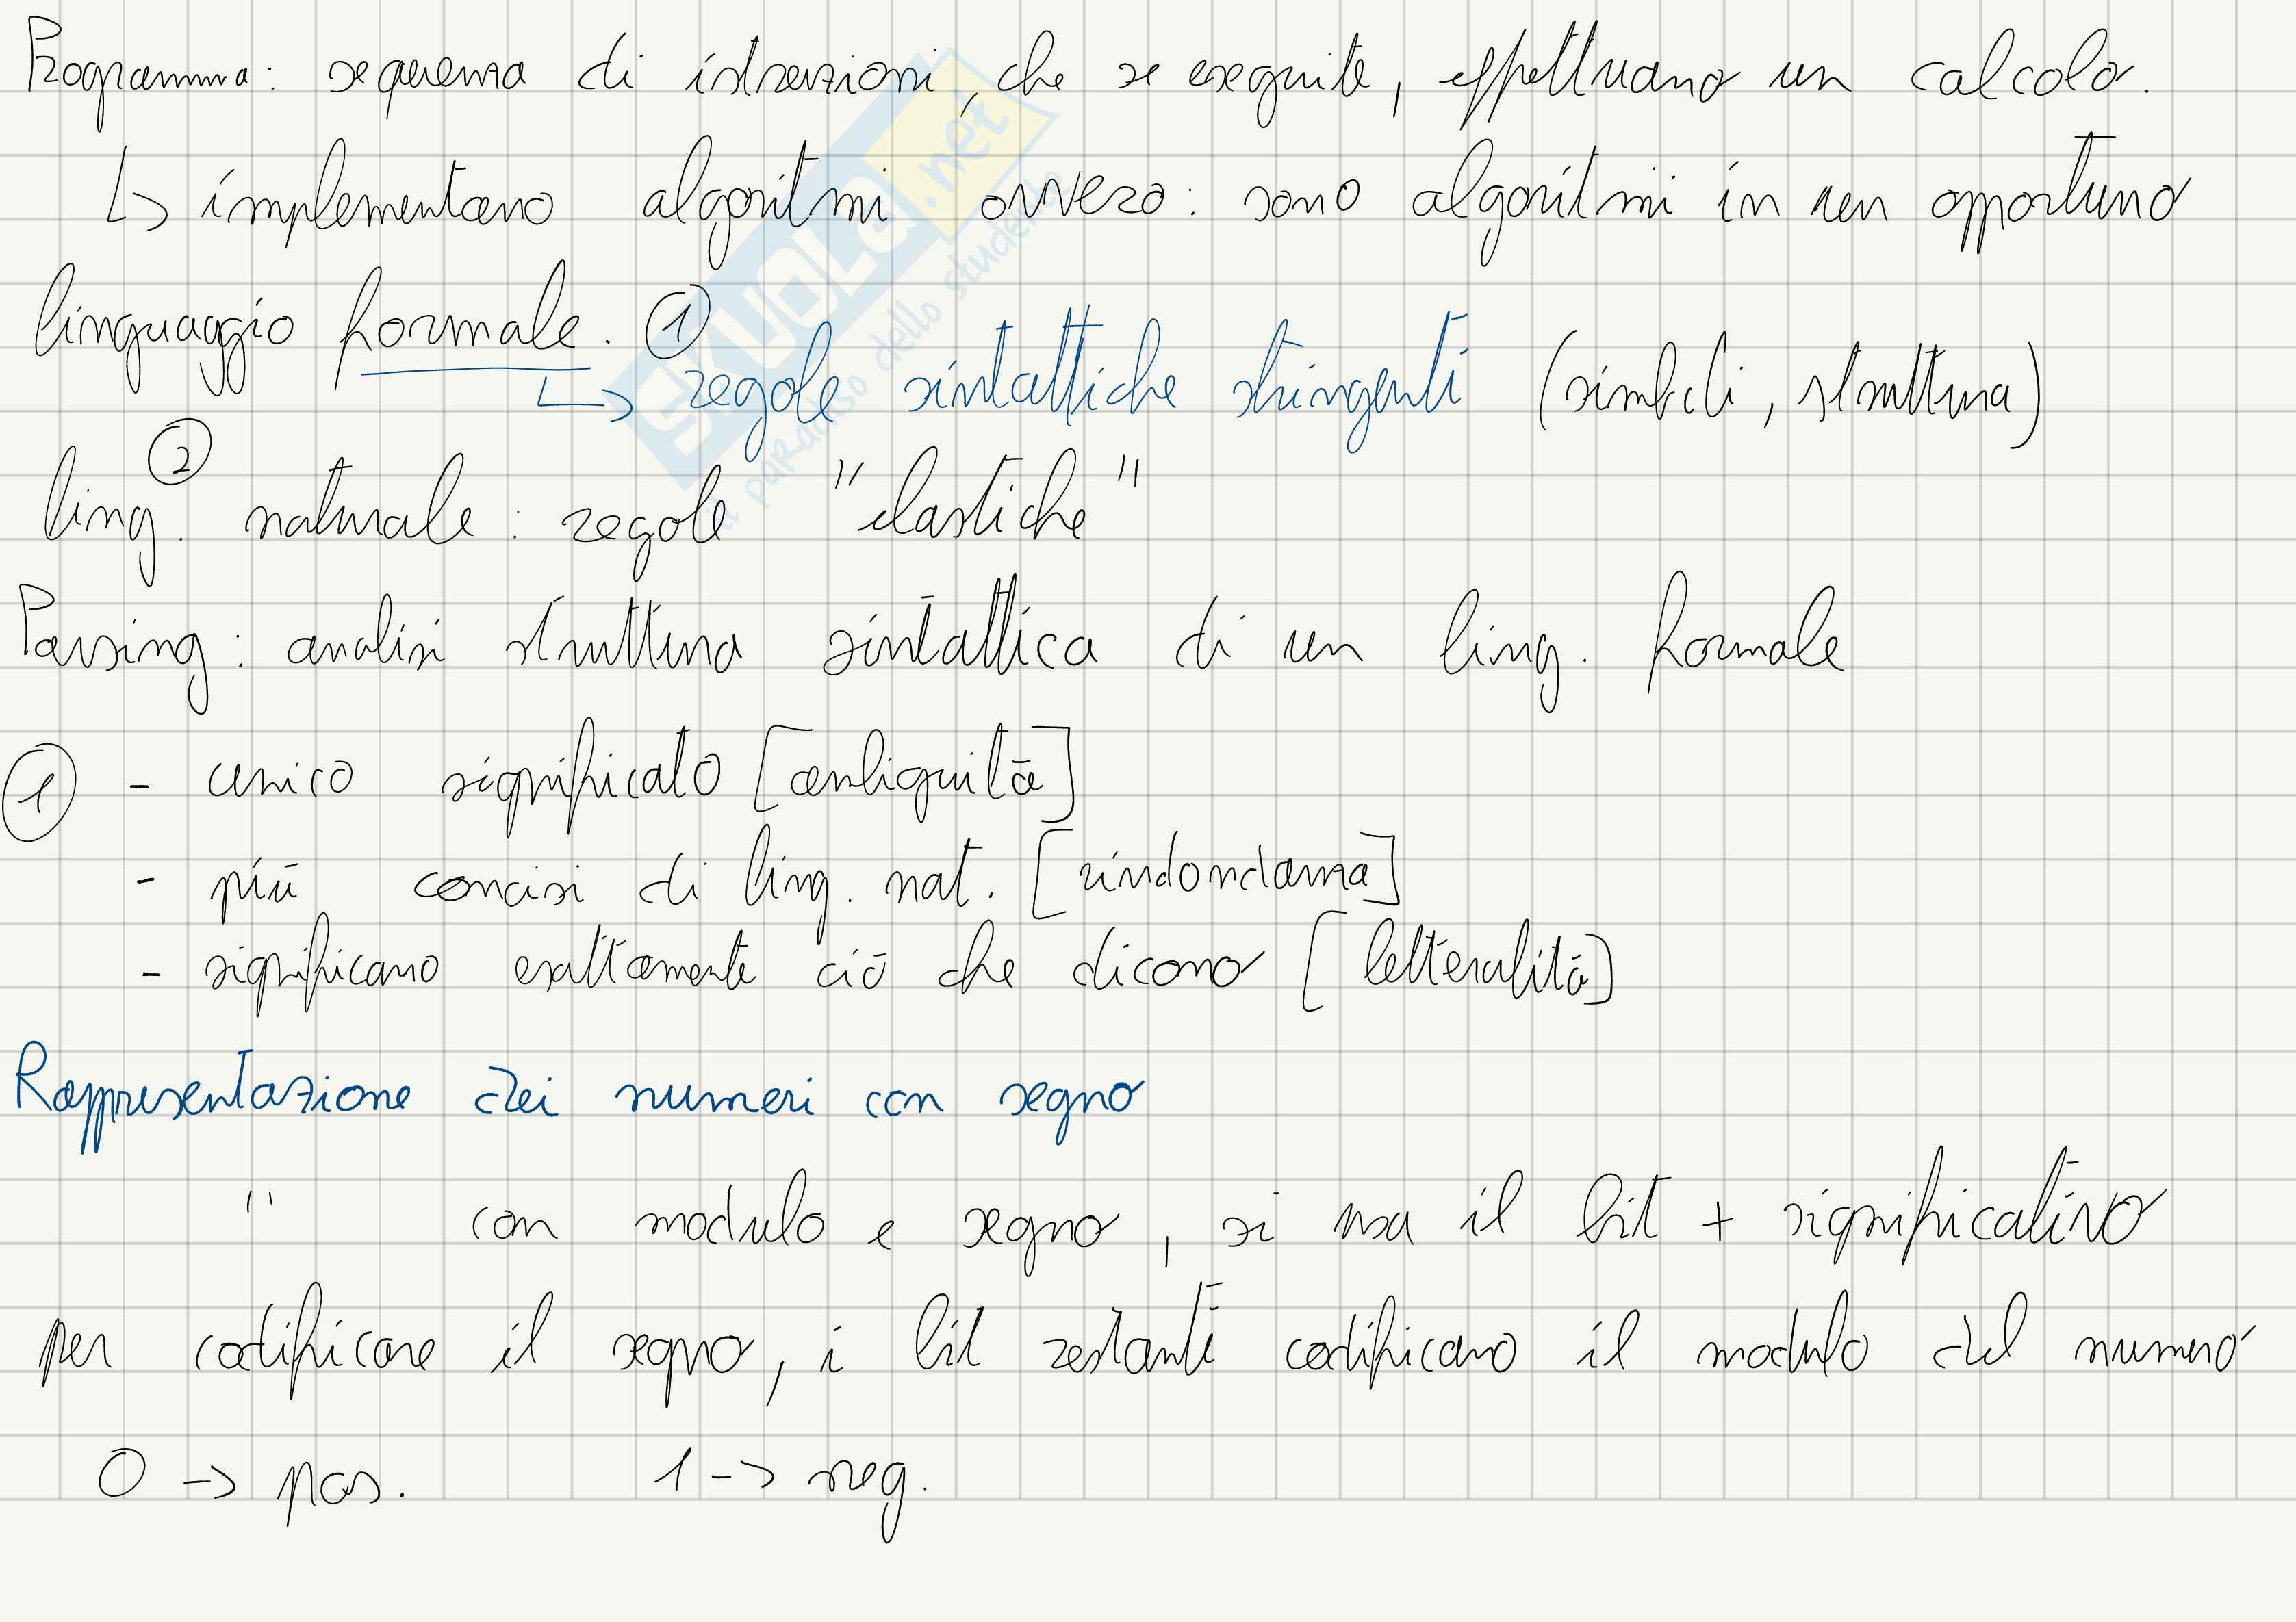 Programma: sequenza di istruzioni, che se eseguite, effettuano un calcolo.
↳ implementano algoritmi ovvero: sono algoritmi in un opportuno
linguaggio formale. ①
↳ regole sintattiche stringenti (simboli, struttura)
②
ling. naturale: regole "elastiche"
Parsing: analisi struttura sintattica di un ling. formale
① - unico significato [ambiguità]
- più concisi di ling. nat. [rindondanza]
- significano esattamente ciò che dicono [letteralità]
Rappresentazione dei numeri con segno
" con modulo e segno, si usa il bit + significativo
per codificare il segno, i bit restanti codificano il modulo del numero
0 -> pos. 1 -> neg.
SKUOLa.net
il paradiso dello studente